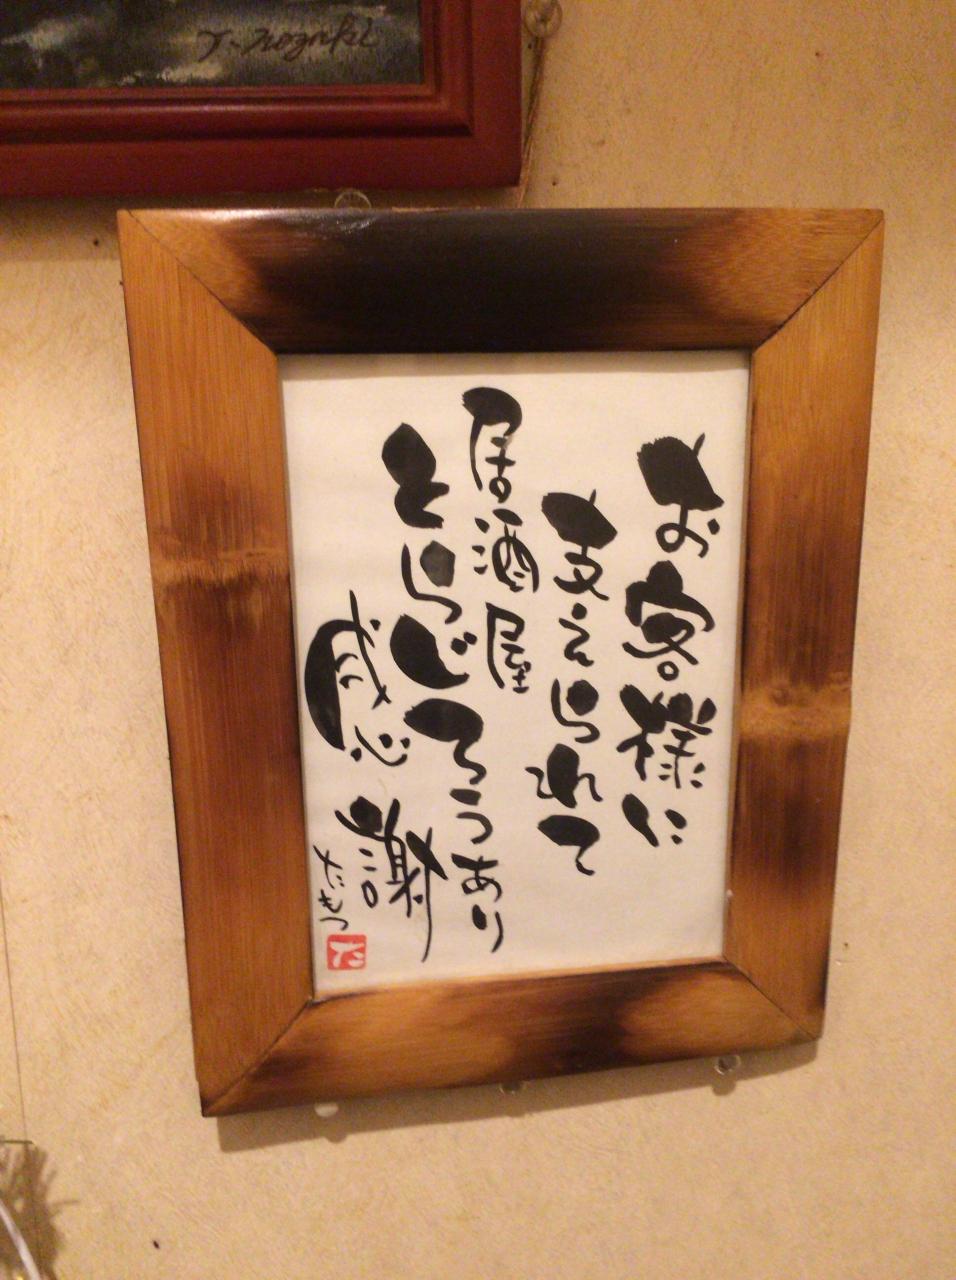 T. Nozaki
お客様に
支えられて
居酒屋
とらじろうあり
感謝
だ